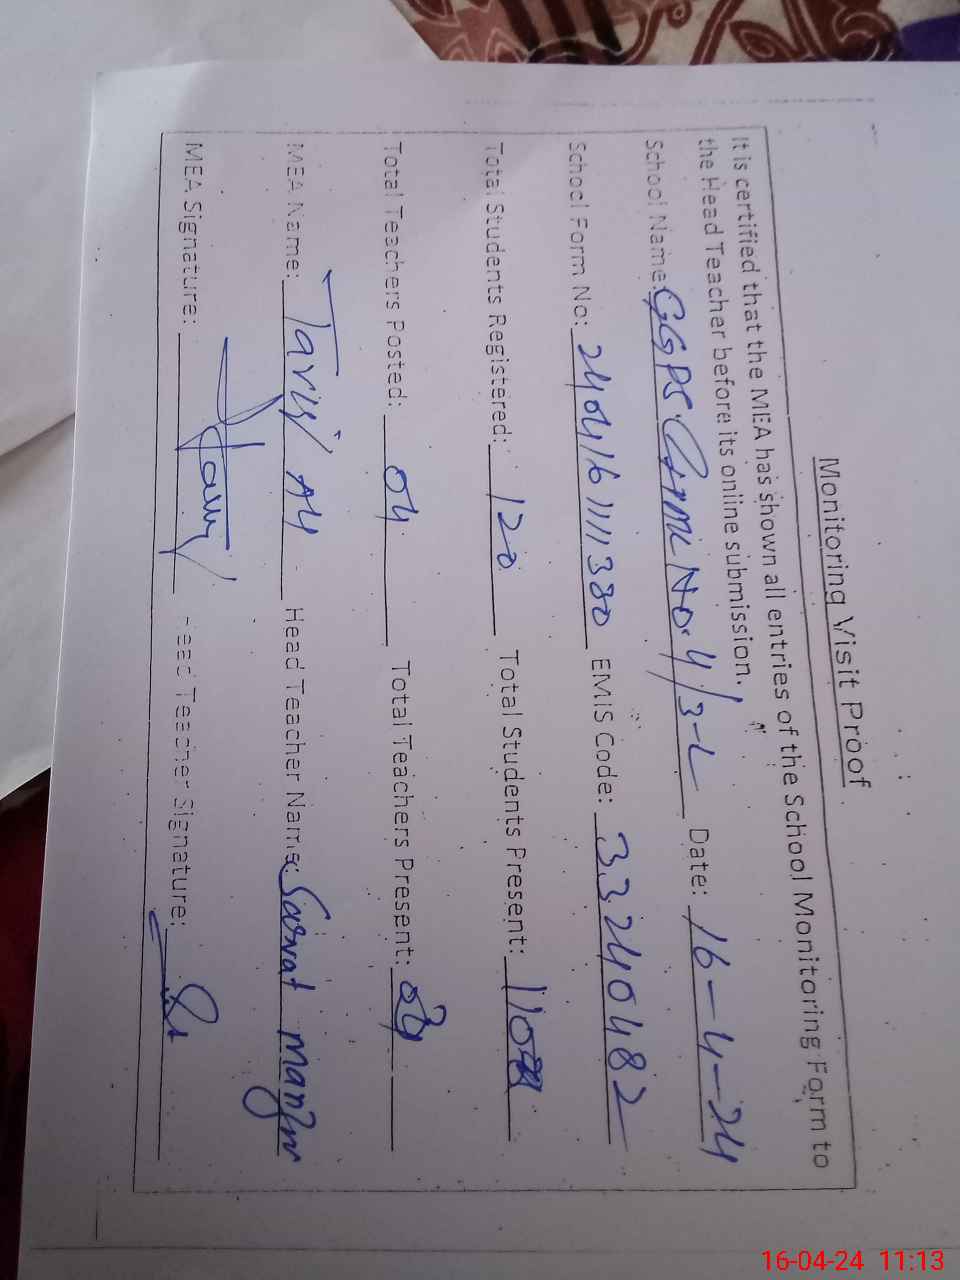 Monitoring Visit Proof
It is certified that the MEA has shown all entries of the School Monitoring Form to
the Head Teacher before its online submission.
School Name: GGPS No. 4/3-L Date: 16-4-24
School Form No: 240416111380 EMIS Code: 33240482
Total Students Registered: 120 Total Students Present: 110
Total Teachers Posted: 04 Total Teachers Present: 04
MEA Name: Head Teacher Name:
MEA Signature: Head Teacher Signature:
16-04-24 11:13